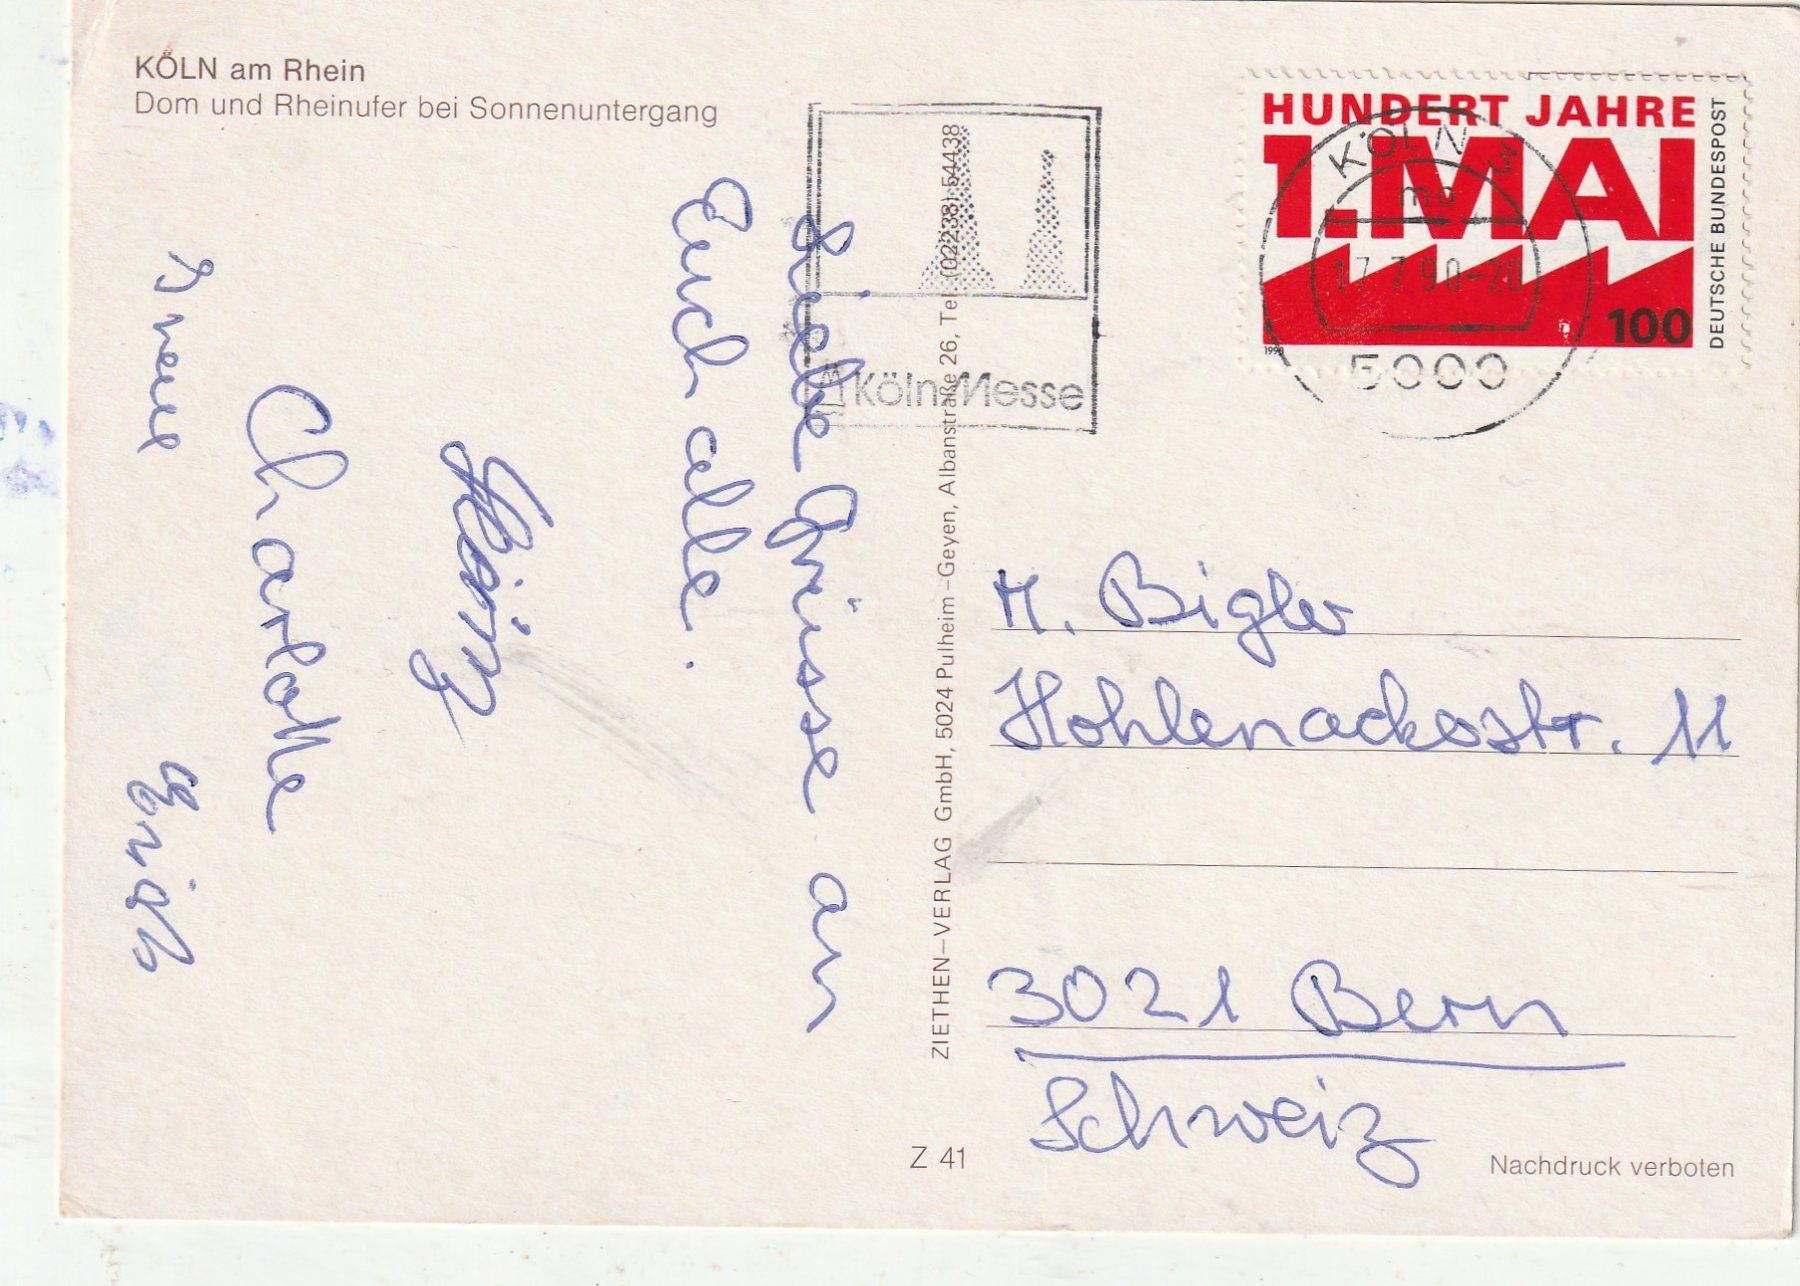 KÖLN am Rhein
Dom und Rheinufer bei Sonnenuntergang
Liebe Grüsse an
Euch alle.
Heinz
Charlotte
Irene Erich
ZIETHEN–VERLAG GmbH, 5024 Pulheim–Geyen, Albanstraße 26, Tel. (02238) 54438
KölnMesse
HUNDERT JAHRE
1.MAI
100
DEUTSCHE BUNDESPOST
1990
KÖLN 3
mc
17.7.90-20
5000
M. Bigler
Hohlenackerstr. 11
3021 Bern
Schweiz
Z 41
Nachdruck verboten